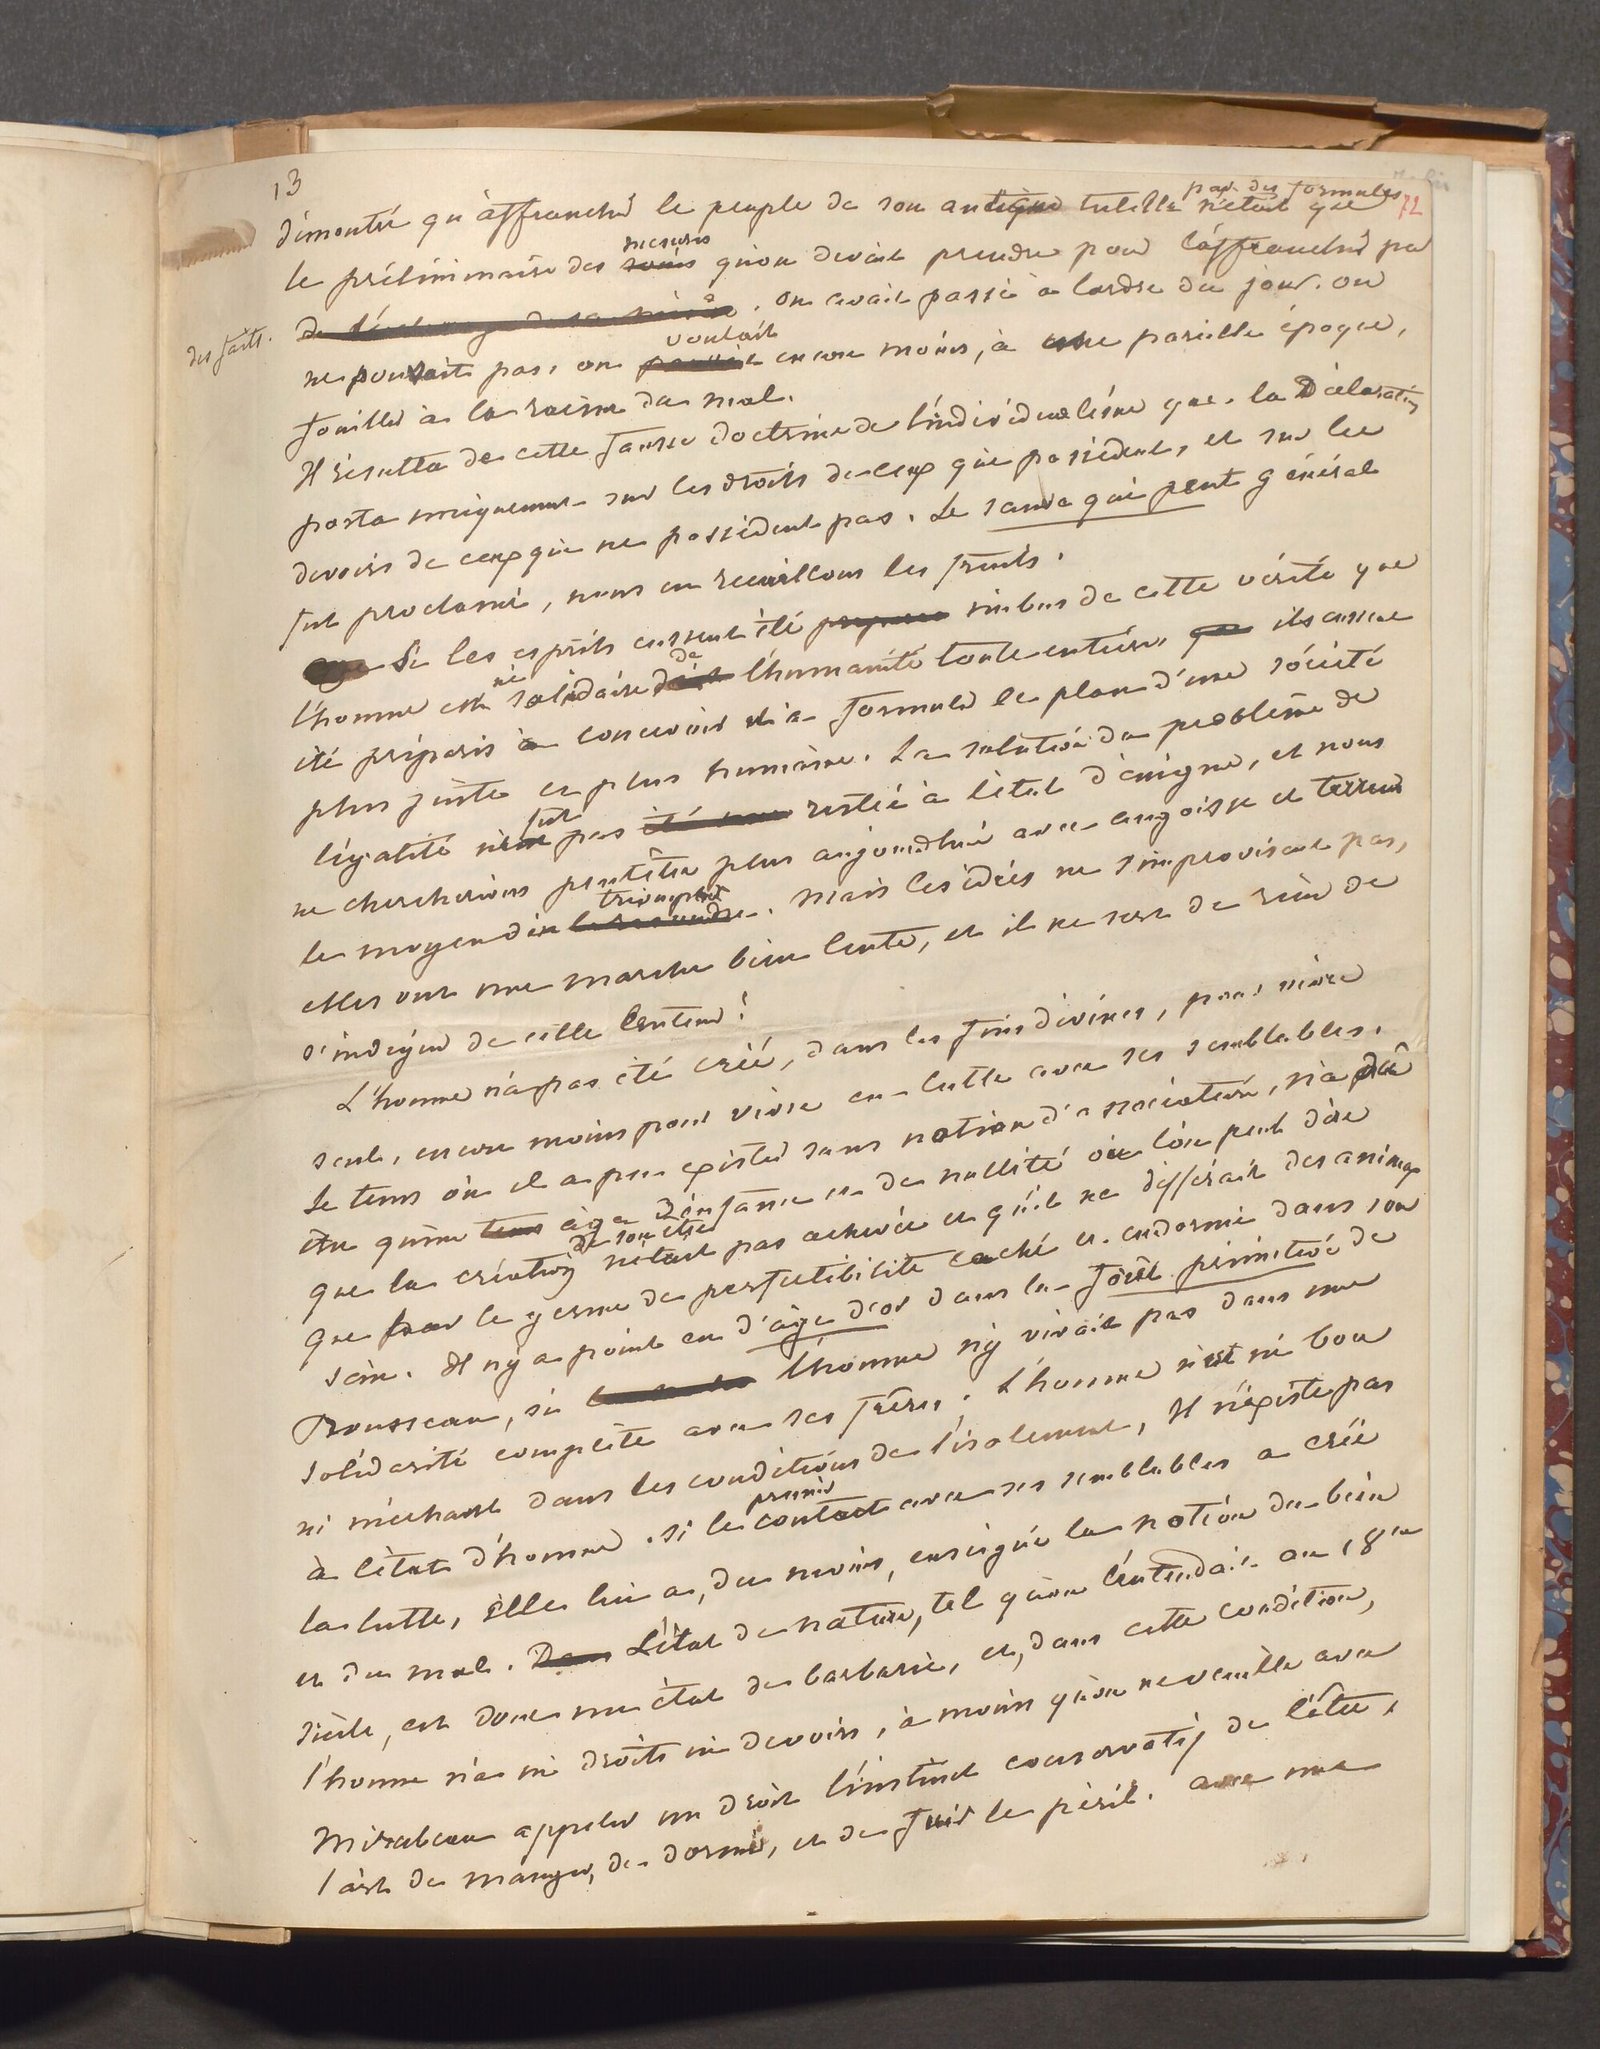 13
par des formules 72
démontré qu'affranchir le peuple de son antique tutelle n'était que
mesures
le préliminaire des soins qu'on devait prendre pour l'affranchir par
des faits.
on avait passé à l'ordre du jour. on
voulait
ne pouvait pas, on pouvait encore moins, à une pareille époque,
fouiller à la racine du mal.
Il résulta de cette fausse doctrine de l'individualisme que la Déclaration
porta uniquement sur les droits de ceux qui possèdent, et sur les
devoirs de ceux qui ne possèdent pas. Le sauve qui peut général
fut proclamé, nous en recueillons les fruits.
Si les esprits eussent été préparés imbus de cette vérité que
né de
l'homme est solidaire de l'humanité toute entière, que ils eussent
été préparés à concevoir et à formuler le plan d'une société
plus juste et plus humaine. La solution du problème de
fut
l'égalité n'eut pas été restée à l'état d'énigme, et nous
ne chercherions peut être plus aujourdhui avec angoisse et terreur
triompher
le moyen d'en la résoudre. Mais les idées ne s'improvisent pas,
elles ont une marche bien lente, et il ne sert de rien de
s'indigner de cette lenteur!
L'homme n'a pas été créé, dans les fins divines, pour vivre
seul, encore moins pour vivre en lutte avec ses semblables.
Le tems où il a pu exister sans notion d'association, n'a pu
être qu'un tems âge d'enfance et de nullité où l'on peut dire
de son être
que la création n'était pas achevée et qu'il ne différait des animaux
que par le germe de perfectibilité caché et endormi dans son
sein. Il n'y a point eu d'âge d'or dans la forêt primitive de
Rousseau, si l'homme n'y vivait pas dans une
solidarité complète avec ses frères. L'homme n'est ni bon
ni méchant dans les conditions de l'isolement, Il n'existe pas
premier
à l'état d'homme. Si le contact avec ses semblables a créé
la lutte, elle lui a, du moins, enseigné la notion du bien
et du mal. Dans L'état de nature, tel qu'on l'entendait au 18me
siècle, est donc un état de barbarie, et, dans cette condition,
l'homme n'a ni droits ni devoirs, à moins qu'on ne veuille avec
Mirabeau appeler un droit l'instinct conservatif de l'être,
l'art de manger, de dormir, et de fuir le péril. avec une